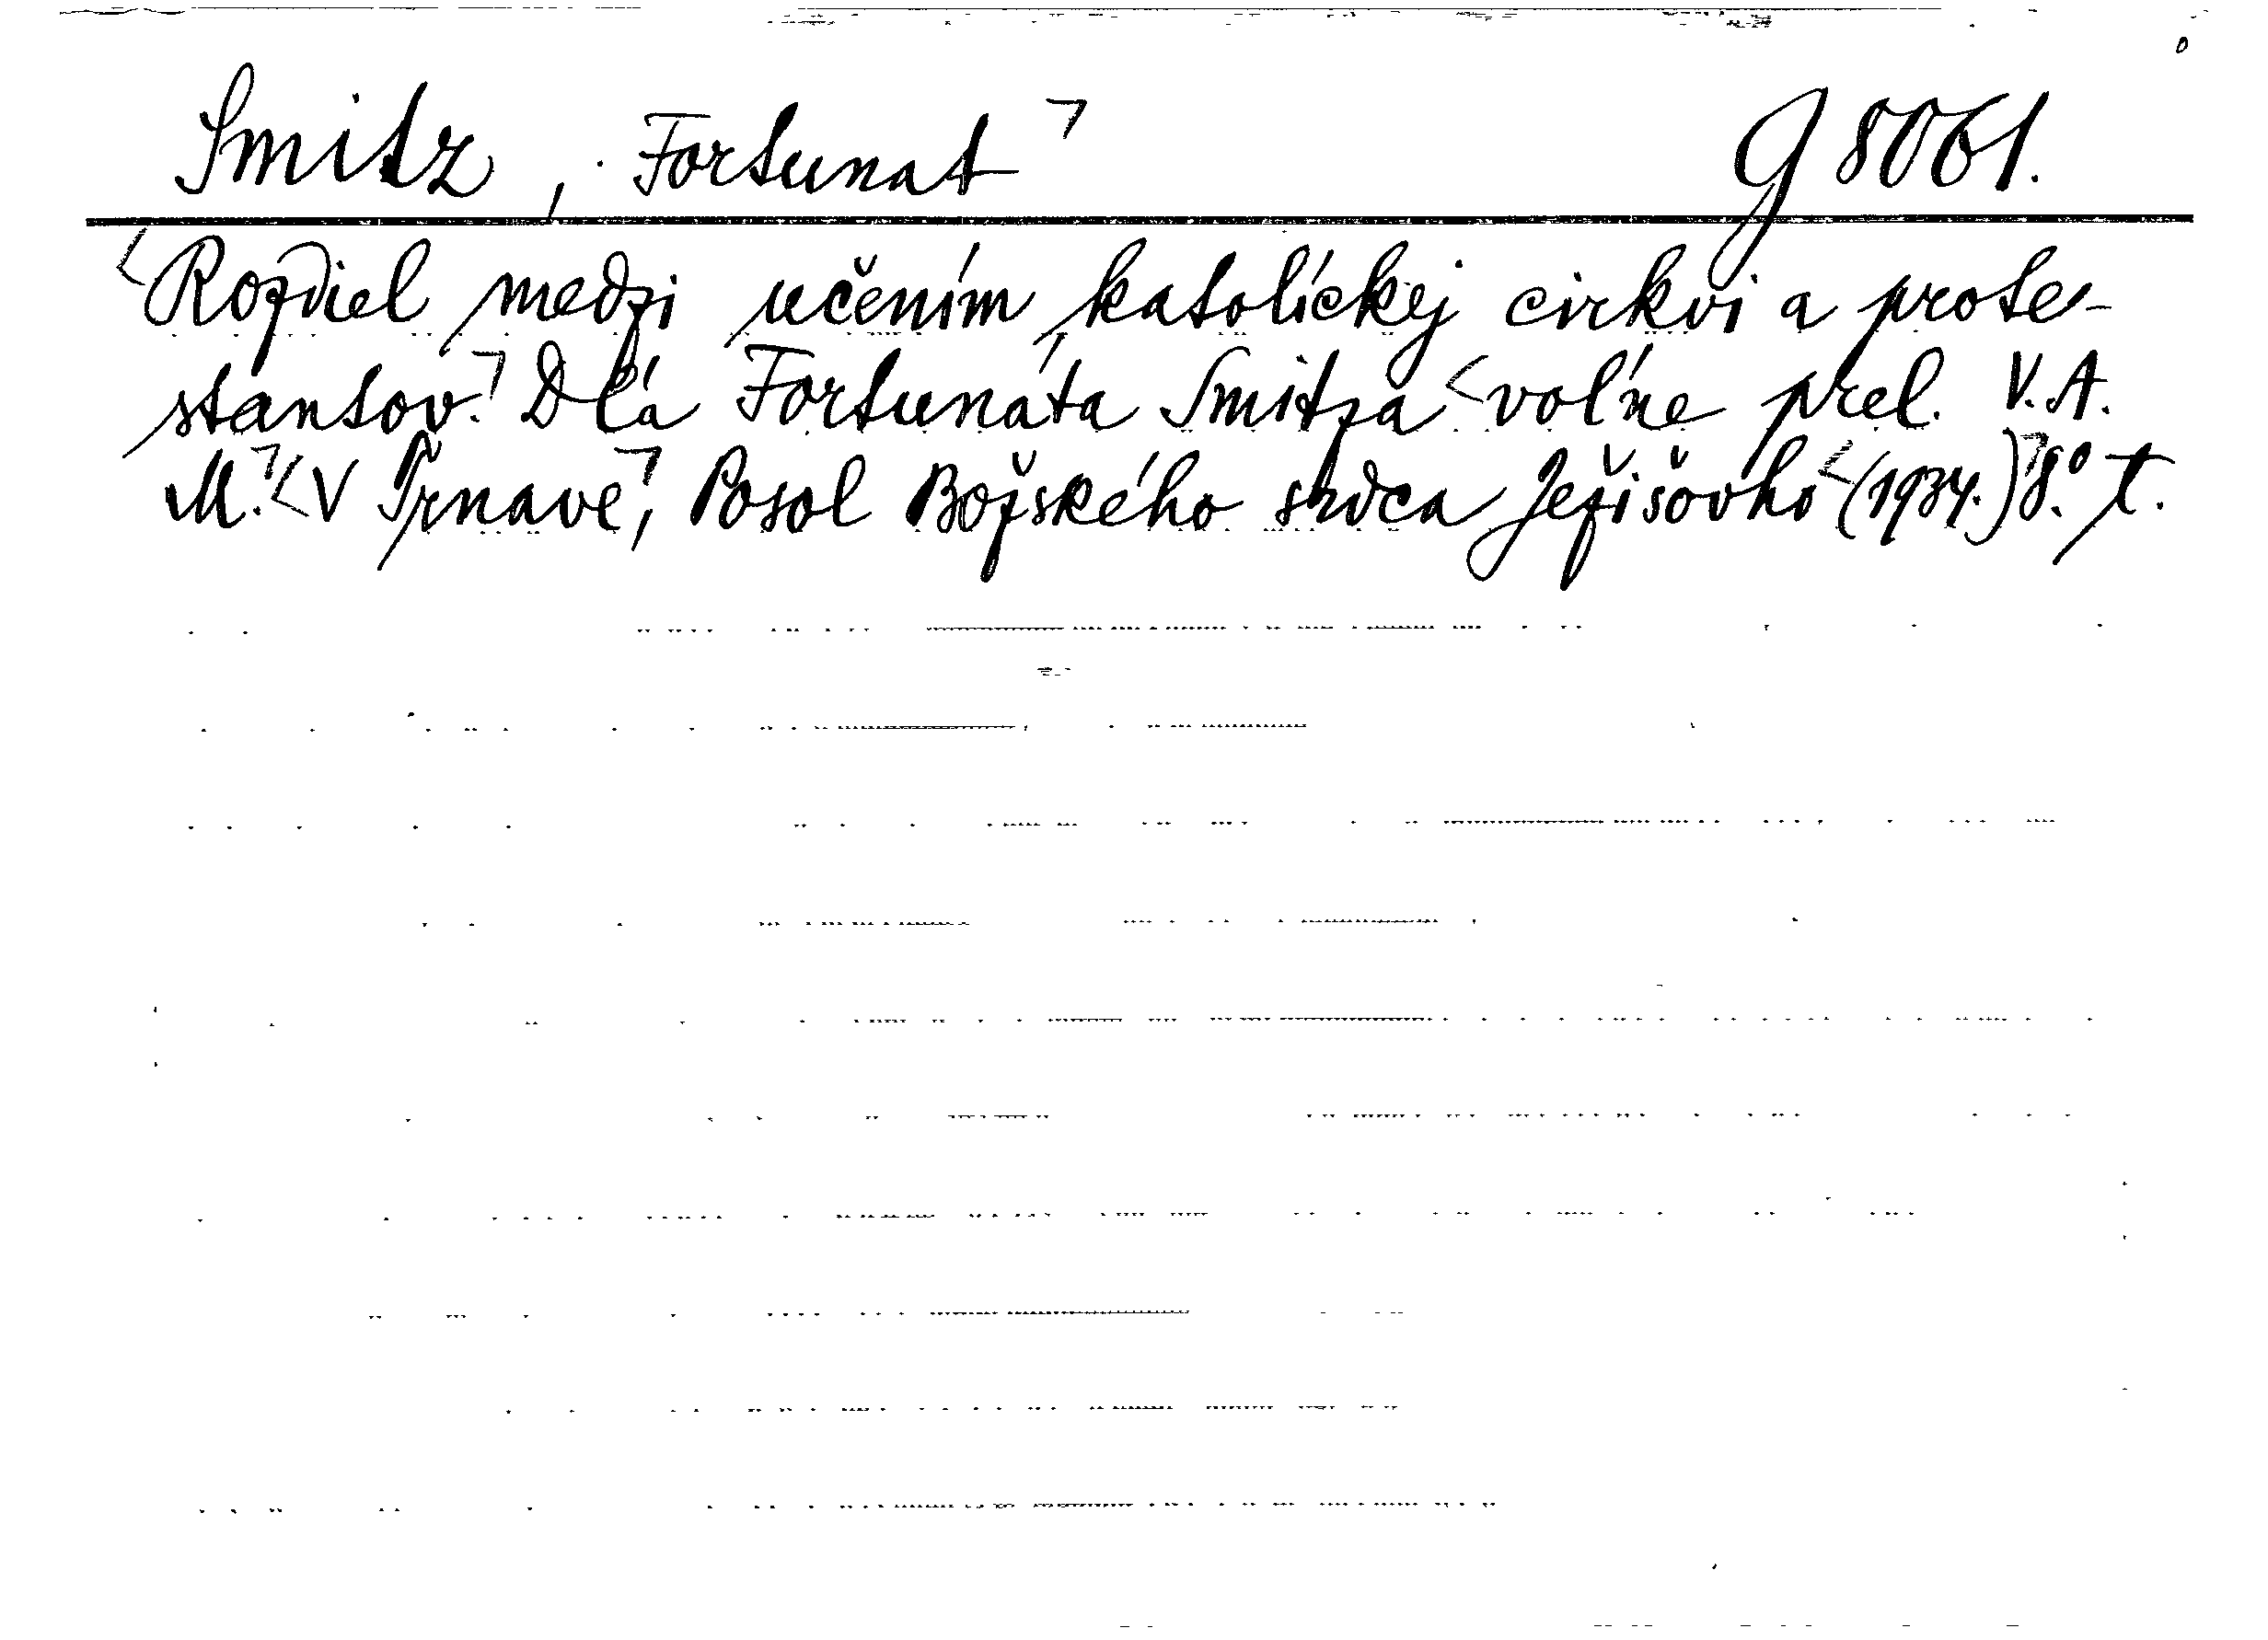 Smitz, Fortunat⌝ G 8061.
<Rozdiel medzi učením katolíckej cirkvi a prote-
stantov.⌝ Dľa Fortunáta Smitza <voľne prel. V. A.
M.⌝ <V Trnave,⌝ Posol Božského srdca Ježišovho <(1934.)⌝ 8.° t.